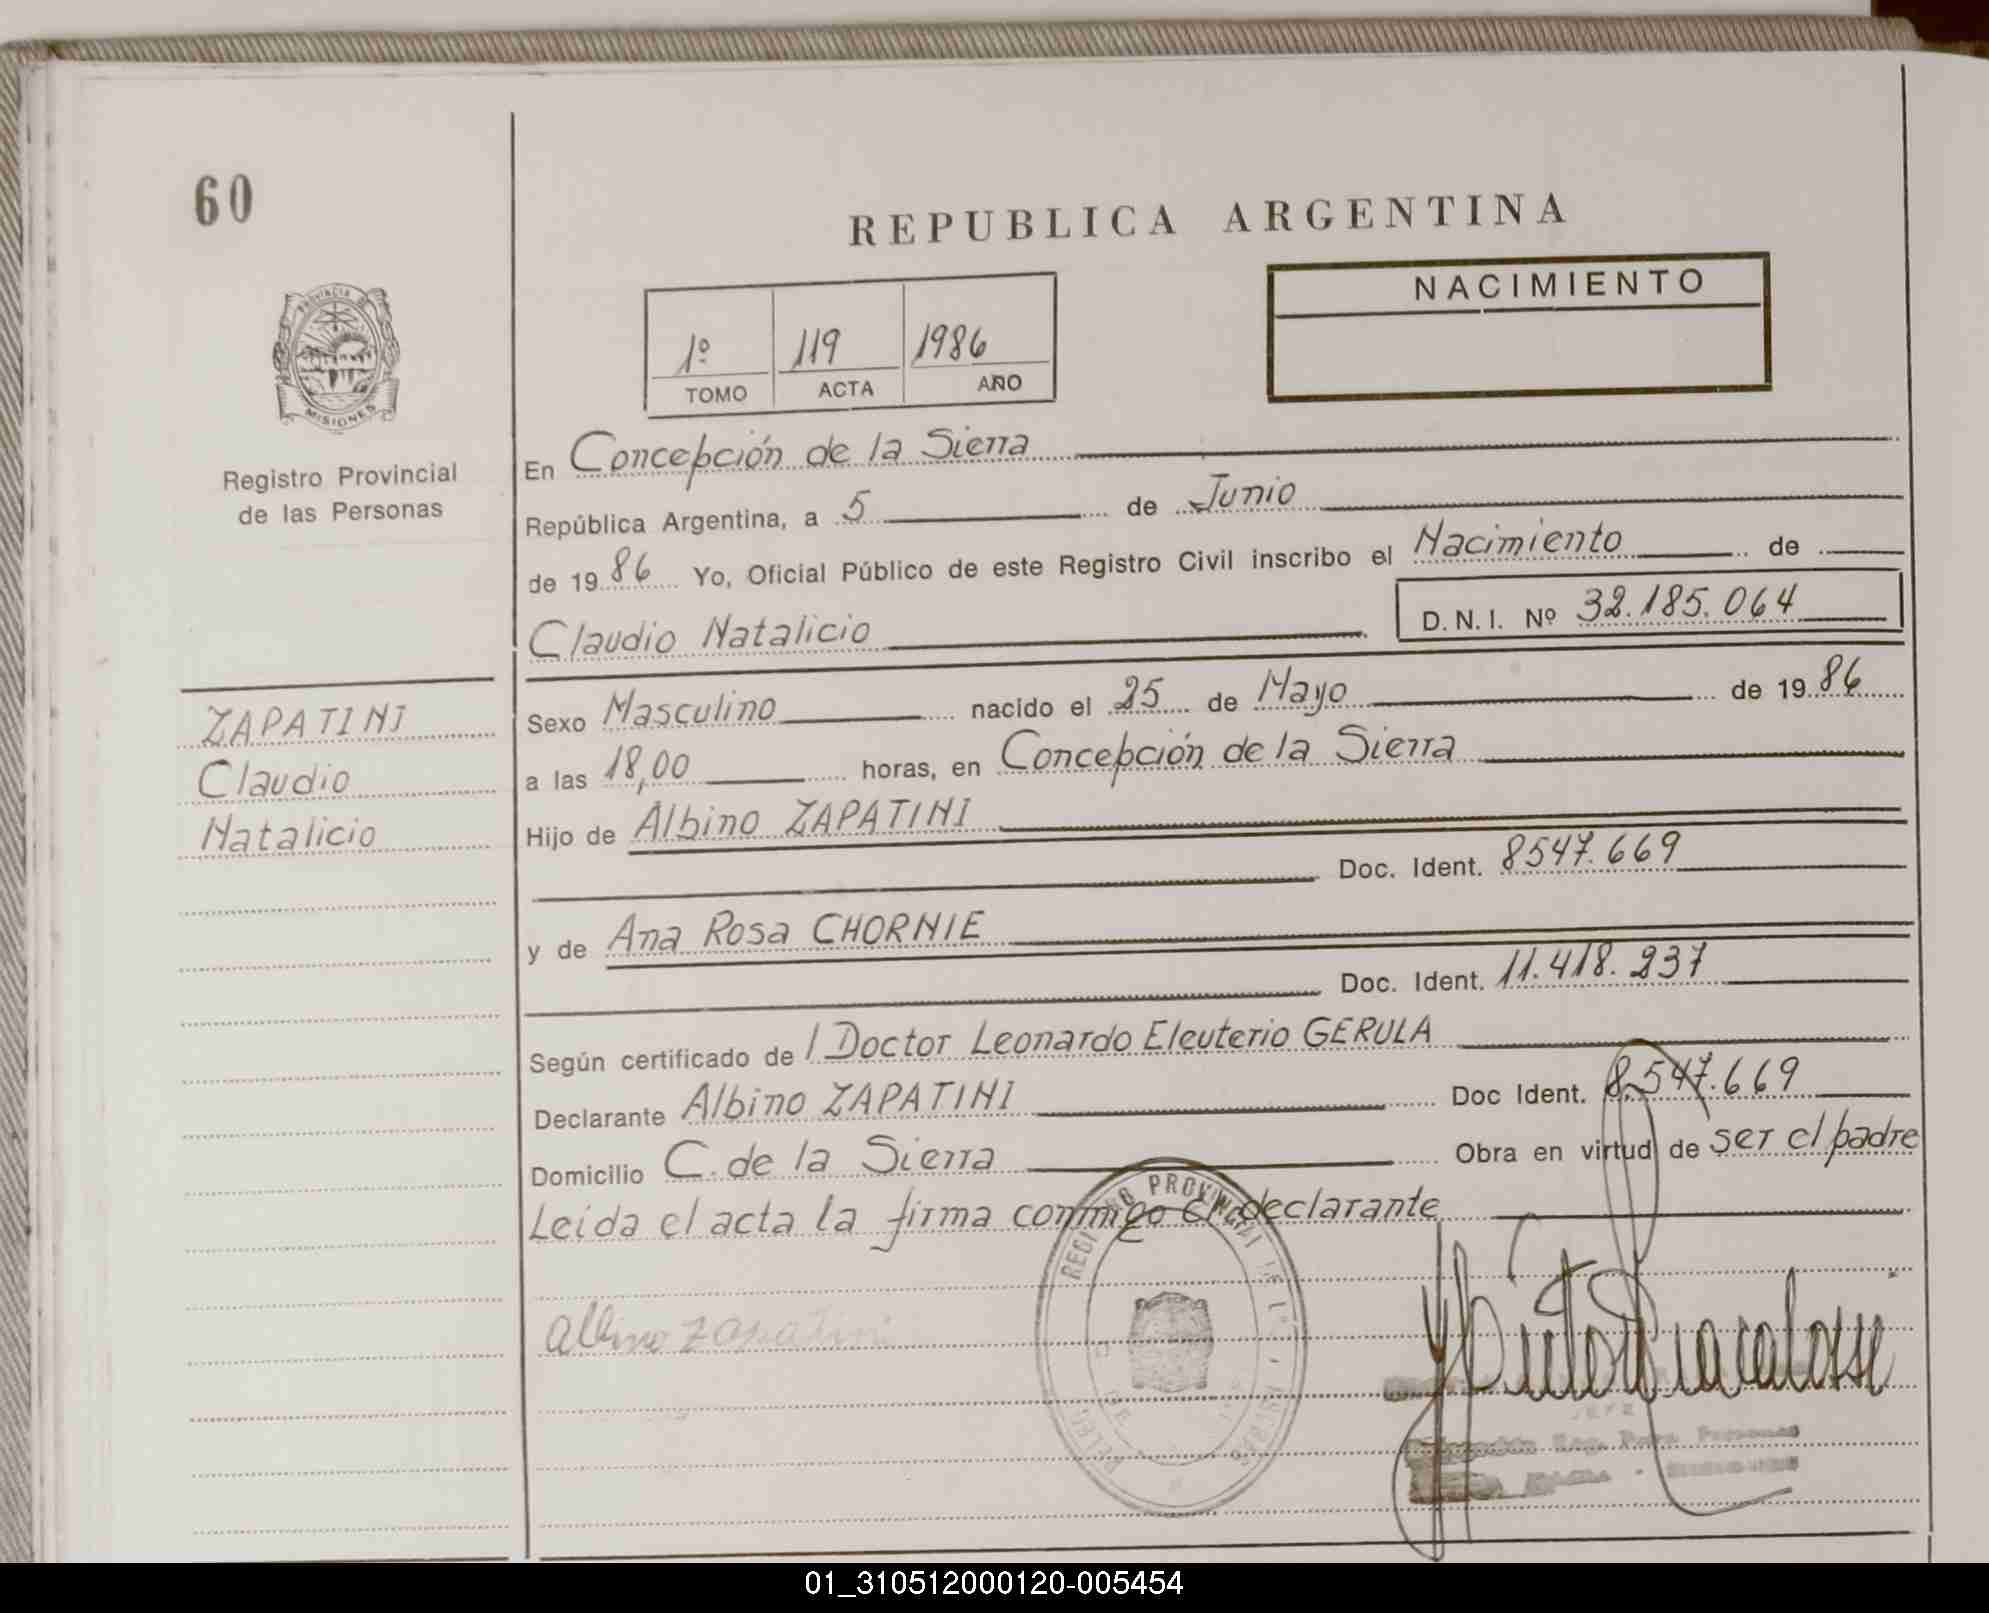 60
REPUBLICA ARGENTINA
NACIMIENTO
1º 119 1986
TOMO ACTA AÑO
PROVINCIA DE
MISIONES
Registro Provincial
de las Personas
En Concepción de la Sierra
República Argentina, a 5 de Junio
de 1986 Yo, Oficial Público de este Registro Civil inscribo el Nacimiento de
Claudio Natalicio D.N.I. Nº 32.185.064
ZAPATINI
Claudio
Natalicio
Sexo Masculino nacido el 25 de Mayo de 1986
a las 18,00 horas, en Concepción de la Sierra
Hijo de Albino ZAPATINI
Doc. Ident. 8547.669
y de Ana Rosa CHORNIE
Doc. Ident. 11.418.237
Según certificado de l Doctor Leonardo Eleuterio GERULA
Declarante Albino ZAPATINI Doc Ident. 8.547.669
Domicilio C. de la Sierra Obra en virtud de ser el padre
Leída el acta la firma conmigo el declarante
REGISTRO PROVINCIAL DE
Albino Zapatini
JEFE
01_310512000120-005454